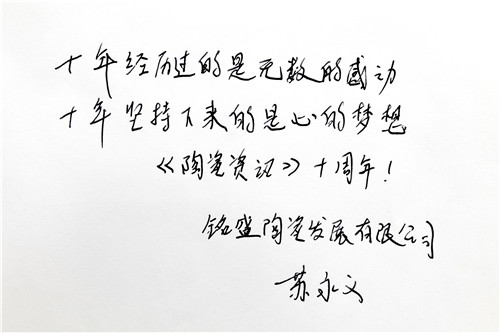 十年经历过的是无数的感动
十年坚持下来的是心的梦想
《陶瓷资讯》十周年！
铭盛陶瓷发展有限公司
苏永义